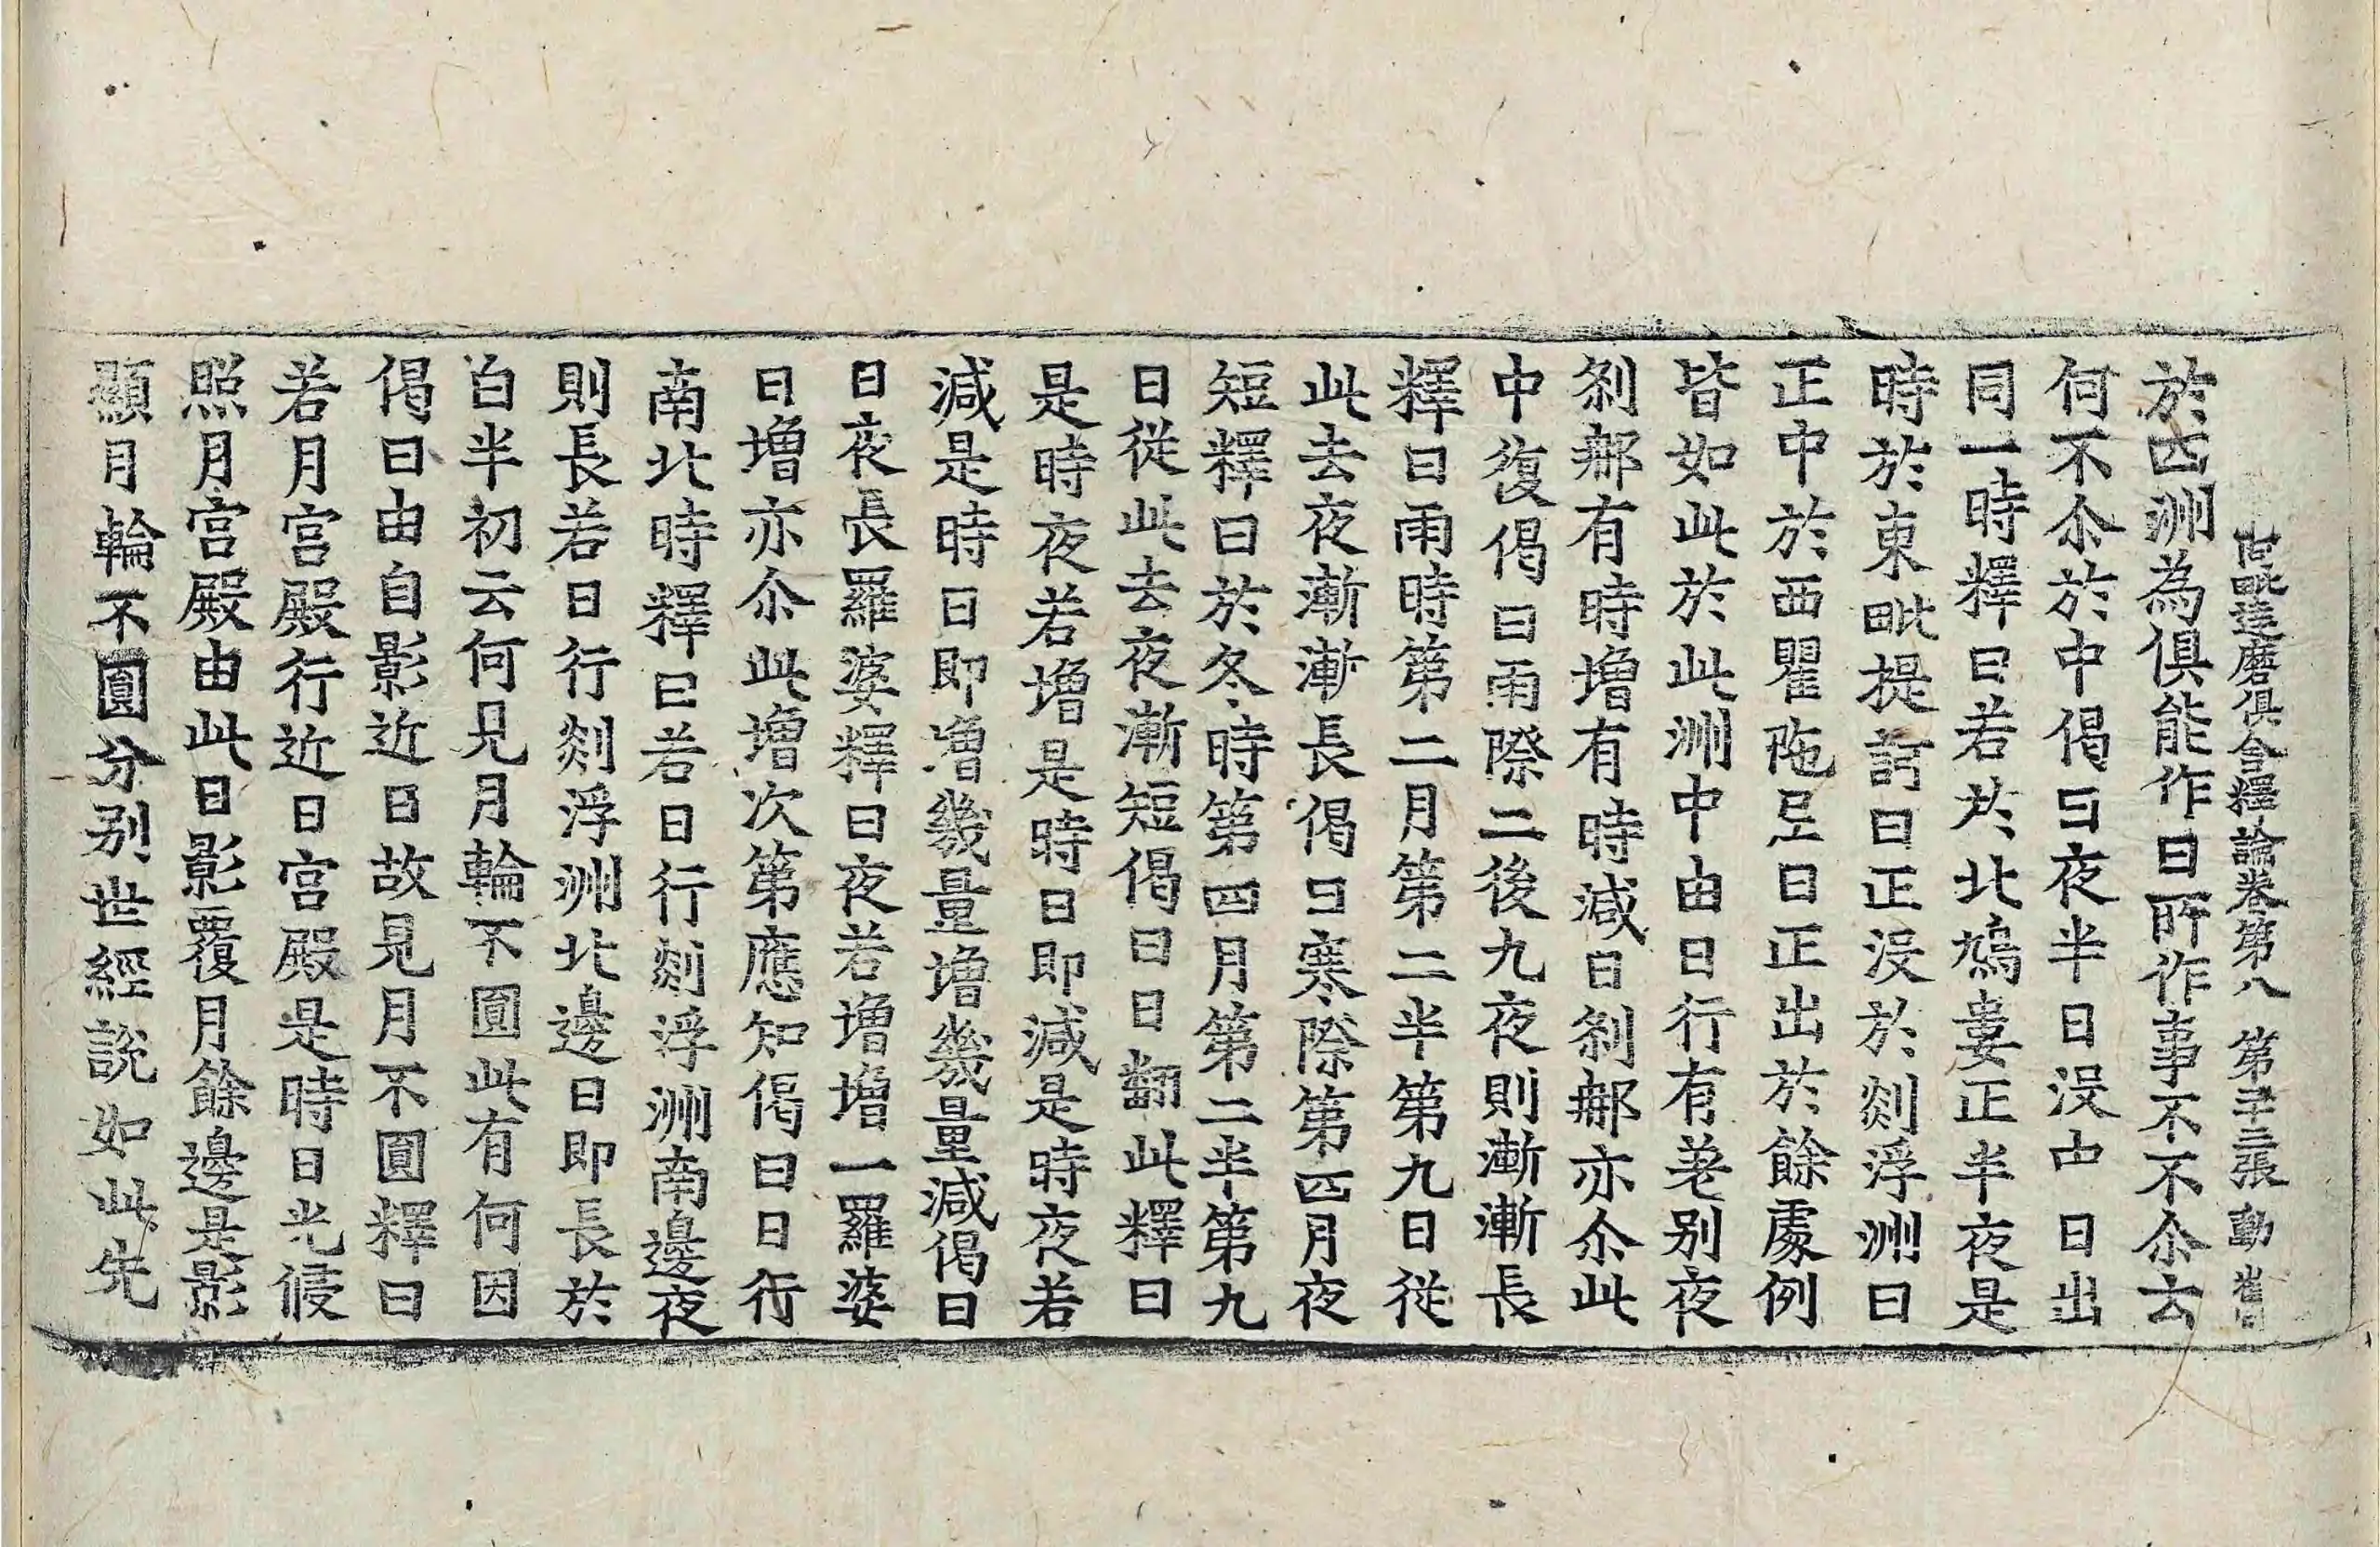 阿毗達磨俱舍釋論卷第八 第二張 動
於四洲為俱能作日所作事不不尒云
何不尒於中偈曰夜半日没中日出
同一時釋曰若於北鳩婁正半夜是
時於東毗提訶日正没於剡浮洲日
正中於西瞿陁尼日正出於餘處例
皆如此於此洲中由日行有差别夜
刹郍有時增有時減日刹郍亦尒此
中復偈曰雨際二後九夜則漸漸長
釋曰雨時第二月第二半第九日從
此去夜漸漸長偈曰寒際第四月夜
短釋曰於冬時第四月第二半第九
日從此去夜漸短偈曰日翻此釋曰
是時夜若增是時日即減是時夜若
減是時日即增幾量增幾量減偈曰
日夜長羅婆釋曰夜若增增一羅婆
日增亦尒此增次第應知偈曰日行
南北時釋曰若日行剡浮洲南邊夜
則長若日行剡浮洲北邊日即長於
白半初云何見月輪不圓此有何因
偈曰由自影近日故見月不圓釋曰
若月宮殿行近日宮殿是時日光侵
照月宮殿由此日影覆月餘邊是影
顯月輪不圓分别世經說如此先